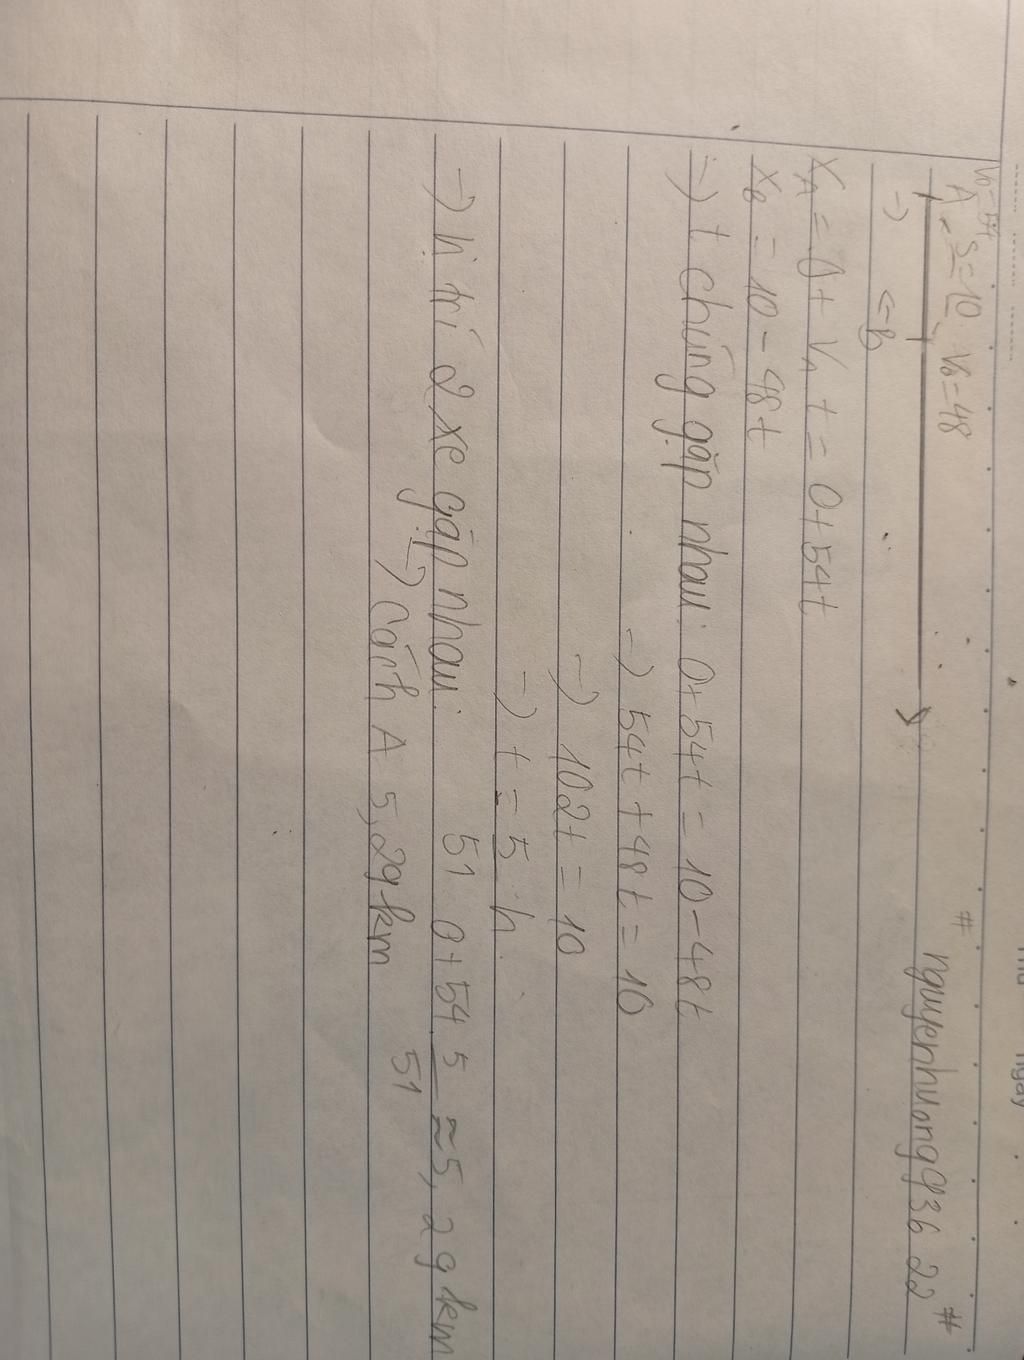 Thứ ngày
# nguyenhuong93622 #
V₀=54
A S=10 V₀=48
-) <=B
XA = 0 + VA t = 0+54t
XB = 10-48t
=) t chúng gặp nhau: 0+54t = 10-48t
-) 54t+48t=10
=) 102t = 10
-) t = 5/51 h
-) Vị trí 2 xe gặp nhau: 0+54 5/51 ≈ 5,29km
↳ Cách A 5,29km